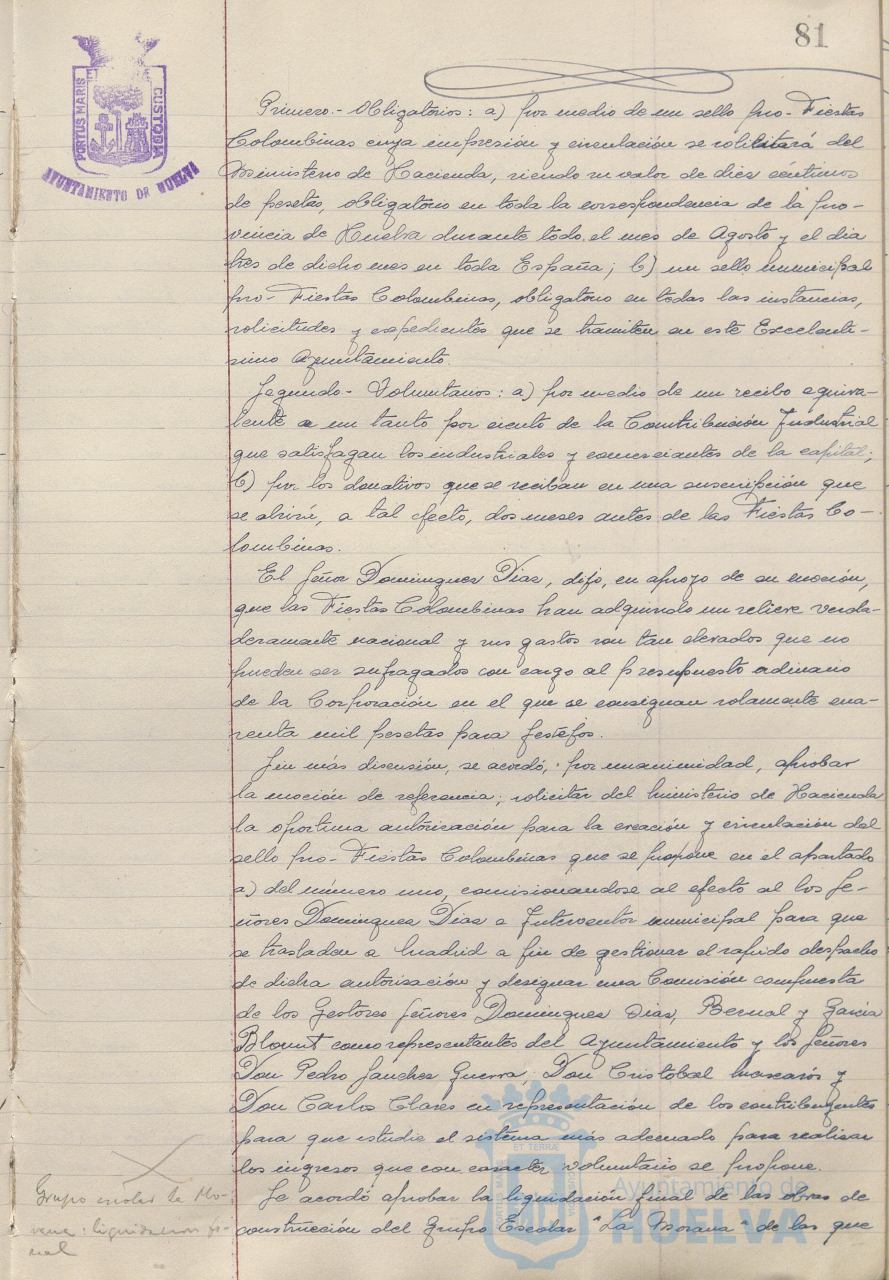 81
PORTUS MARIS ET TERRÆ CUSTODIA
AYUNTAMIENTO DE HUELVA
Primero.- Obligatorios: a) por medio de un sello pro-Fiestas
Colombinas cuya impresión y circulación se solicitará del
Ministerio de Hacienda, siendo su valor de diez céntimos
de pesetas, obligatorio en toda la correspondencia de la pro-
vincia de Huelva durante todo el mes de Agosto y el dia
tres de dicho mes en toda España; b) un sello municipal
pro-Fiestas Colombinas, obligatorio en todas las instancias,
solicitudes y expedientes que se tramiten en este Excelentí-
simo Ayuntamiento.
Segundo- Voluntarios: a) por medio de un recibo equiva-
lente a un tanto por ciento de la Contribución Industrial
que satisfagan los industriales y comerciantes de la capital;
b) por los donativos que se reciban en una suscripción que
se abriré, a tal efecto, dos meses antes de las Fiestas Co-
lombinas.
El Señor Dominguez Diaz, dijo, en apoyo de su moción,
que las Fiestas Colombinas han adquirido un relieve verda-
deramente nacional y sus gastos son tan elevados que no
pueden ser sufragados con cargo al presupuesto ordinario
de la Corporación en el que se consignan solamente cua-
renta mil pesetas para festejos.
Sin más discusión, se acordó, por unanimidad, aprobar
la moción de referencia; solicitar del Ministerio de Hacienda
la oportuna autorización para la creación y circulación del
sello pro-Fiestas Colombinas que se propone en el apartado
a) del número uno, comisionandose al efecto al los Se-
ñores Dominguez Diaz e Interventor municipal para que
se trasladen a Madrid a fin de gestionar el rapido despacho
de dicha autorización y designar una Comisión compuesta
de los Gestores Señores Dominguez Diaz, Bernal y Garcia
Blount como representantes del Ayuntamiento y los Señores
Don Pedro Sanchez Guerra, Don Cristóbal Mascarós y
Don Carlos Clares en representación de los contribuyentes
para que estudie el sistema más adecuado para realizar
los ingresos que con caracter voluntario se propone.
Se acordó aprobar la liquidación final de las obras de
construcción del Grupo Escolar "La Morana" de las que
Grupo escolar la Mo-
rana: liquidacion fi-
nal
Ayuntamiento de
HUELVA